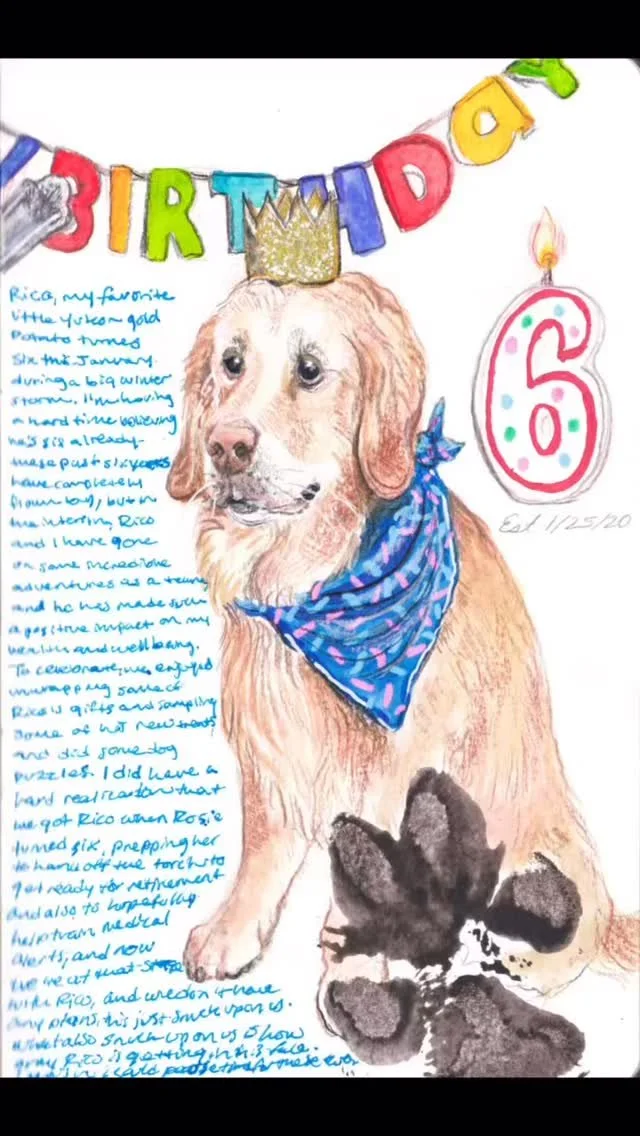 BIRTHDAY
6
Est 1/25/20
Rico, my favorite
little yukon gold
Potato turned
six this January
during a big winter
storm. I'm having
a hard time believing
he's six already
these past six years
have completely
flown by, but in
the interim, Rico
and I have gone
on some incredible
adventures as a team
and he has made such
a positive impact on my
health and wellbeing.
To celebrate, we enjoyed
unwrapping some of
Rico's gifts and sampling
some of his new treats
and did some dog
puzzles. I did have a
hard realization that
we got Rico when Rosie
turned six, prepping her
to hand off the torch to
get ready for retirement
and also to hopefully
help train medical
alerts, and now
we're at that stage
with Rico, and we don't have
any plans, this just snuck upon us.
What also snuck upon us is how
gray Rico is getting in his face.
I could pause time for these